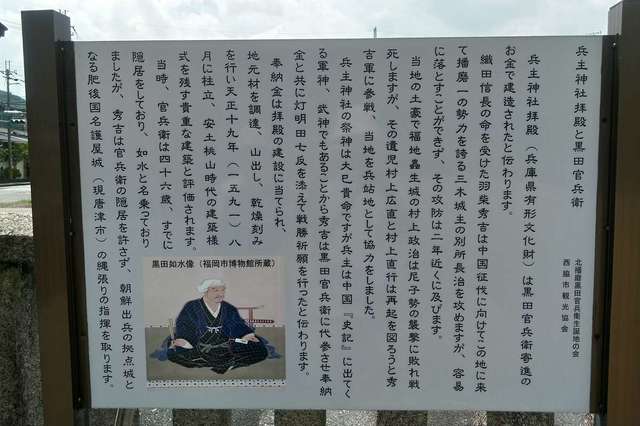 兵主神社拝殿と黒田官兵衛
北播磨黒田官兵衛生誕地の会
西脇市観光協会
兵主神社拝殿（兵庫県有形文化財）は黒田官兵衛寄進の
お金で建造されたと伝わります。
織田信長の命を受けた羽柴秀吉は中国征伐に向けてこの地に来
て播磨一の勢力を誇る三木城主の別所長治を攻めますが、容易
に落とすことができず、その攻防は二年近くに及びます。
当地の土豪で福地畠生城の村上政治は尼子勢の襲撃に敗れ戦
死しますが、その遺児村上広直と村上直行は再起を図ろうと秀
吉軍に参戦、当地を兵站地として協力をしました。
兵主神社の祭神は大己貴命ですが兵主は中国『史記』に出てく
る軍神、武神でもあることから秀吉は黒田官兵衛に代参させ奉納
金と共に灯明田七反を添えて戦勝祈願を行ったと伝わります。
奉納金は拝殿の建設に当てられ、
地元材を調達、山出し、乾燥刻み
を行い天正十九年（一五九一）八
月に柱立、安土桃山時代の建築様
式を残す貴重な建築と評価されます。
当時、官兵衛は四十六歳、すでに
隠居をしており、如水と名乗っており
ましたが、秀吉は官兵衛の隠居を許さず、朝鮮出兵の拠点城と
なる肥後国名護屋城（現唐津市）の縄張りの指揮を取ります。
黒田如水像（福岡市博物館所蔵）